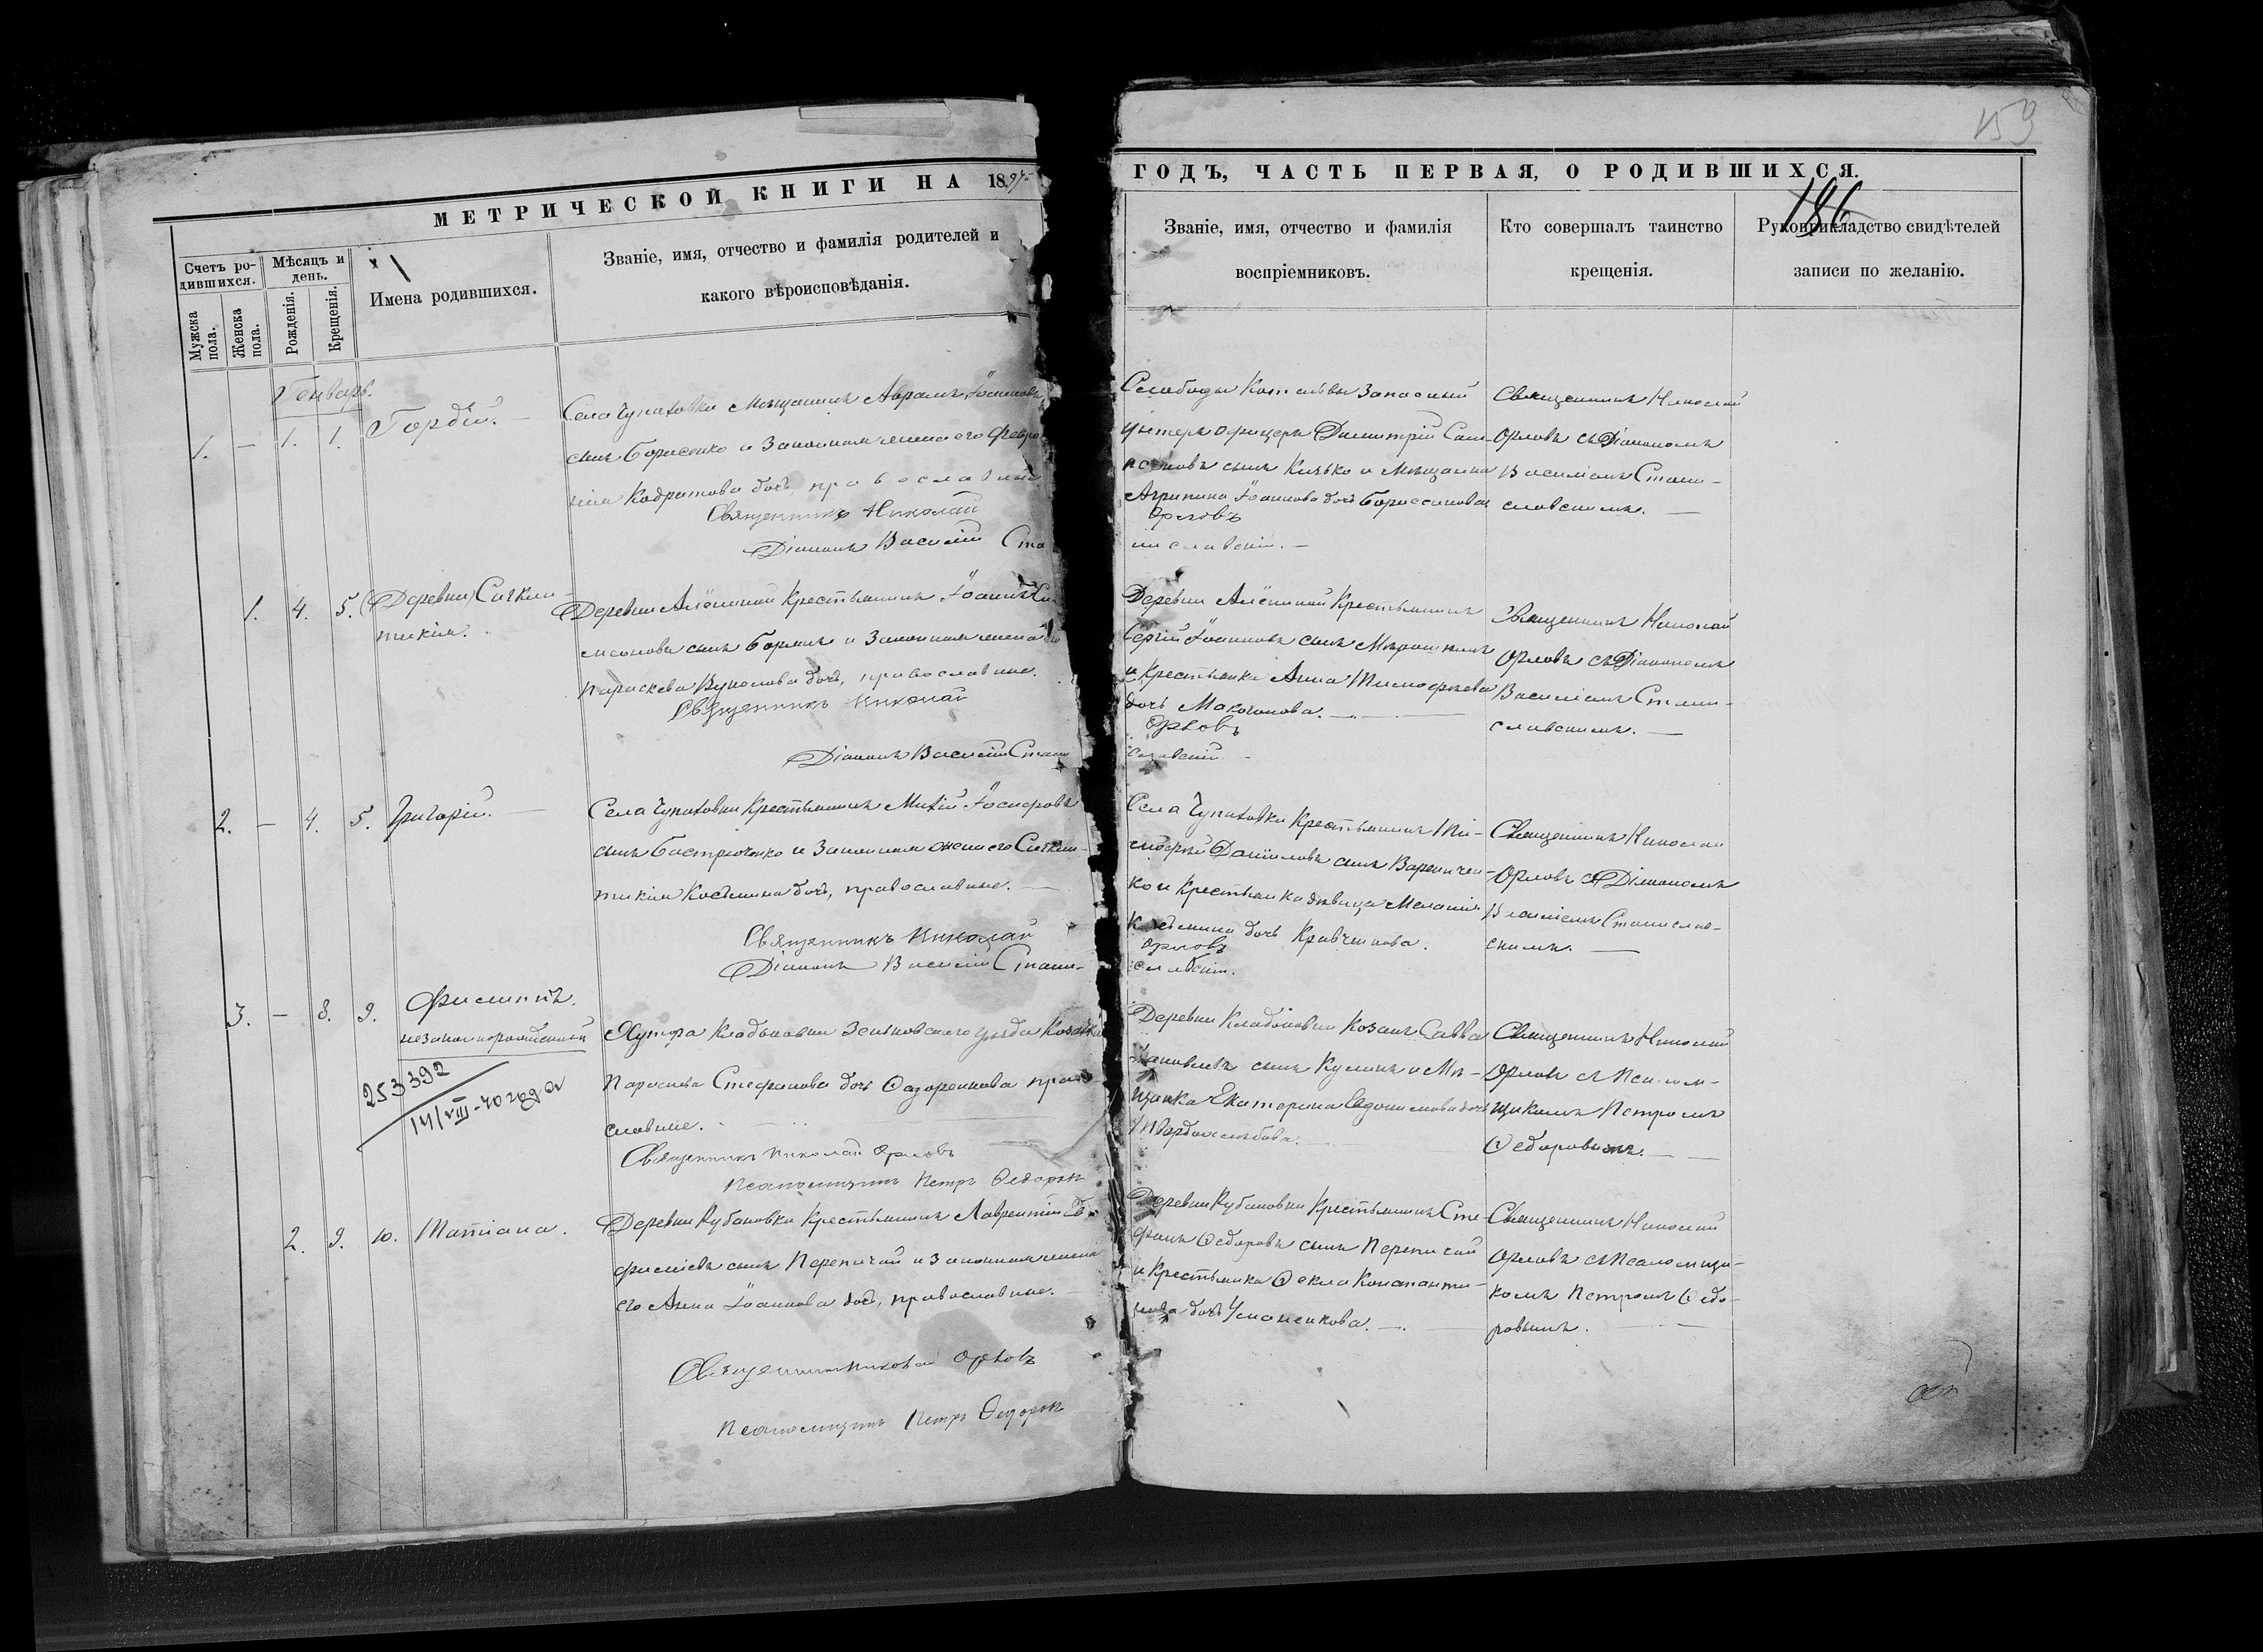 159
МЕТРИЧЕСКОЙ КНИГИ НА 1897
ГОДЪ, ЧАСТЬ ПЕРВАЯ, О РОДИВШИХСЯ.
186
Счетъ ро-
дившихся.
Мужска
пола.
Женска
пола.
Мѣсяцъ и
день.
Рожденія.
Крещенія.
Имена родившихся.
Званіе, имя, отчество и фамилія родителей и
какого вѣроисповѣданія.
Званіе, имя, отчество и фамилія
воспріемниковъ.
Кто совершалъ таинство
крещенія.
Рукоприкладство свидѣтелей
записи по желанію.
Генварь.
1. — 1. 1. Гордій. —
Села Чупаховки Мѣщанинъ Аврамъ Іоанновъ
сынъ Борисенко и Законная жена его Февро
нія Кодратова дочь, православные.
Священникъ Николай
Діаконъ Василій Ста
Слободы Котельвы Запасный
унтеръ офицеръ Димитрій Сам-
псоновъ сынъ Кизько и Мѣщанка
Агрипина Іоаннова дочь Борисенкова
Орловъ
ниславскій. —
Священникъ Николай
Орловъ съ Діакономъ
Василіемъ Стани-
славскимъ. —
1. 4. 5. (Деревни) Синкли-
тикія.
Деревни Алёшиной Крестьянинъ Іоаннъ Си-
меоновъ сынъ Бормъ и Законная жена его
Параскева Вуколова дочь, православные.
Священникъ Николай
Діаконъ Василій Стани
Деревни Алёшиной Крестьянинъ
Сергій Іоанновъ сынъ Мирошникъ
и Крестьянка Анна Тимофѣева
дочь Макогонова. —
Орловъ
славскій —
Священникъ Николай
Орловъ съ Діакономъ
Василіемъ Стани-
славскимъ. —
2. — 4. 5. Григорій. —
Села Чупаховки Крестьянинъ Михій Іосифовъ
сынъ Бастрюченко и Законная жена его Синкли-
тикія Косьмина дочь, православные. —
Священникъ Николай
Діаконъ Василій Стани-
Села Чупаховки Крестьянинъ Ти-
мофѣй Даніиловъ сынъ Варениченко
ко и Крестьянка дѣвица Меланія
Косьмина дочь Кравченкова.
Орловъ
славскій.
Священникъ Николай
Орловъ съ Діакономъ
Василіемъ Станислав-
скимъ. —
3. — 8. 9. Филиппъ.
незаконнорожденный
253392
14/VIII-40 года
Хутора Кладьковки Зеньковского уѣзда Козачка
Параскева Стефанова дочь Ѳедоренкова право
славные. —
Священникъ Николай Орловъ
Псаломщикъ Петръ Ѳедоровъ
Деревни Кладьковки Козакъ Савва
Іаковлевъ сынъ Куликъ и Мѣ-
щанка Екатерина Евдокимова дочь
Твердохлѣбова.
Священникъ Николай
Орловъ съ Псалом-
щикомъ Петромъ
Ѳедоровымъ. —
2. 9. 10. Татіана.
Деревни Рубановки Крестьянинъ Лаврентій Ев
фиміевъ сынъ Перепичай и Законная жена
его Анна Іоаннова дочь, православные. —
Священникъ Николай Орловъ
Псаломщикъ Петръ Ѳедоровъ
Деревни Рубановки Крестьянинъ Сте-
фанъ Ѳедоровъ сынъ Перепичай
и Крестьянка Ѳекла Константи-
нова дочь Усманенкова. —
Священникъ Николай
Орловъ съ Псаломщи-
комъ Петромъ Ѳедо-
ровымъ. —